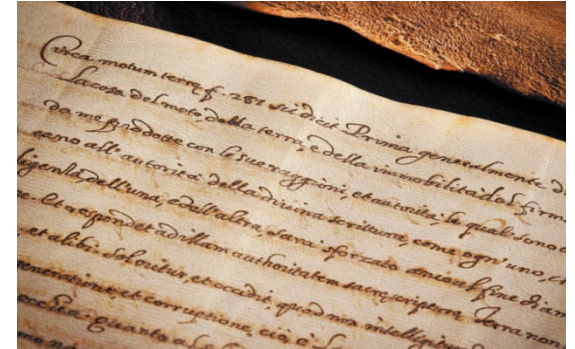 Circa motum terrę f. 287 sic dicit Prima generalmente
la cosa del moto della terra, e della immobilità del firm
da me prodotte con le sue raggioni, et autorità, le quali sono
cano all'autorità della divina scrittura, come ogn'uno, ch
ligentia dell'una, e dell'altra, sarà sforzato ancora al fine di am
re. Et respondet ad illam authoritatem sacrę scripturę Terra non
et alibi: Sol oritur, et occidit, quod non
neratione, et corruptione, cio è
Quanto al